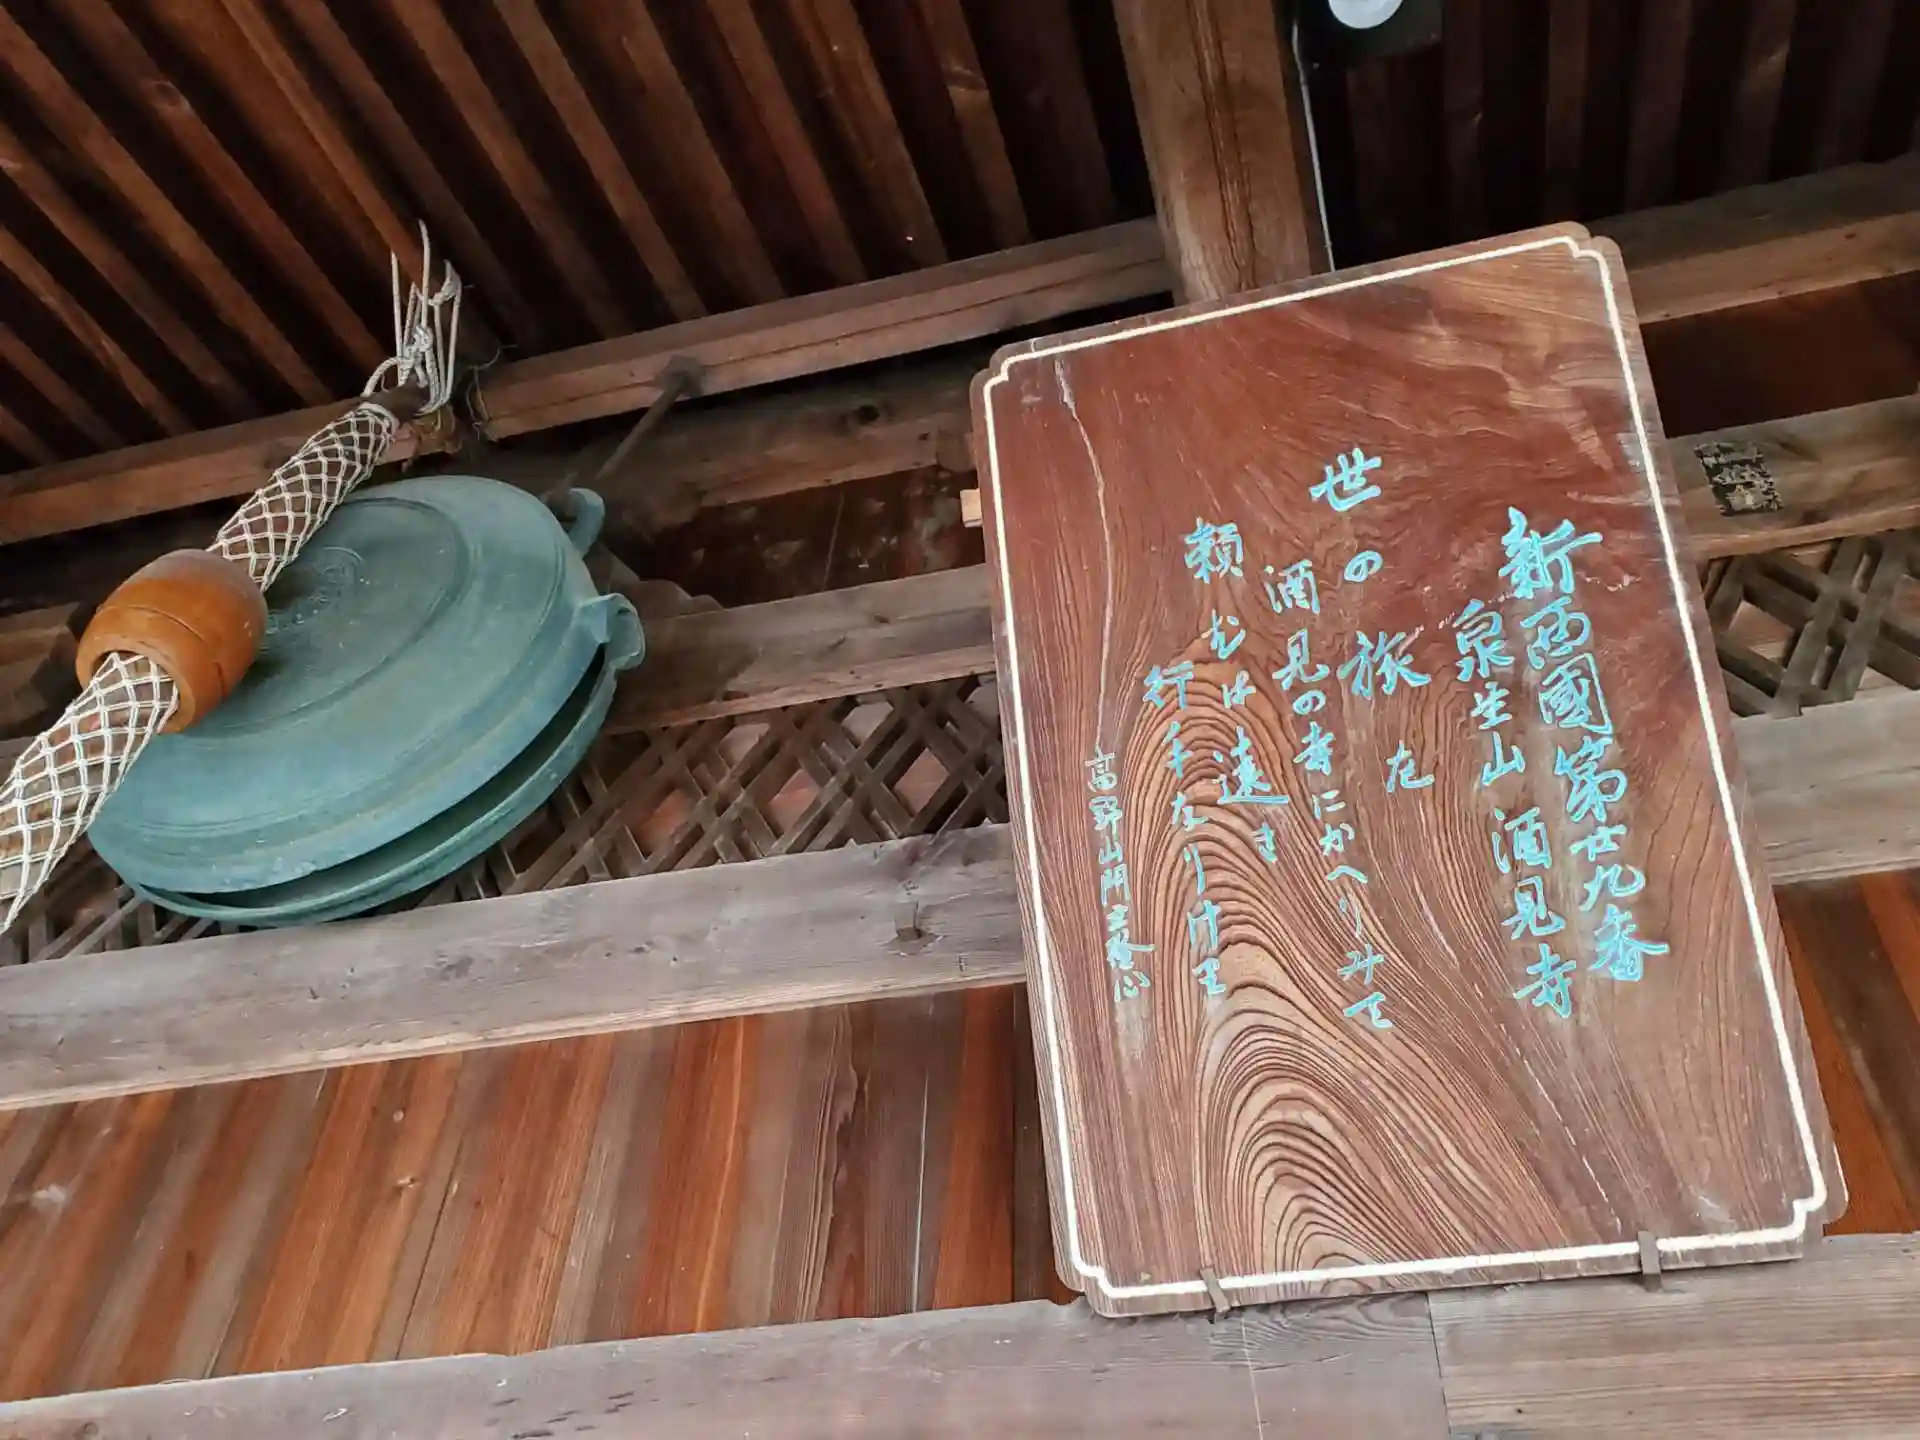 新西國第廿九番
泉生山 酒見寺
世の旅を
酒見の寺にかへりみて
頼むは遠き
行く手なりけ里
高野山門主